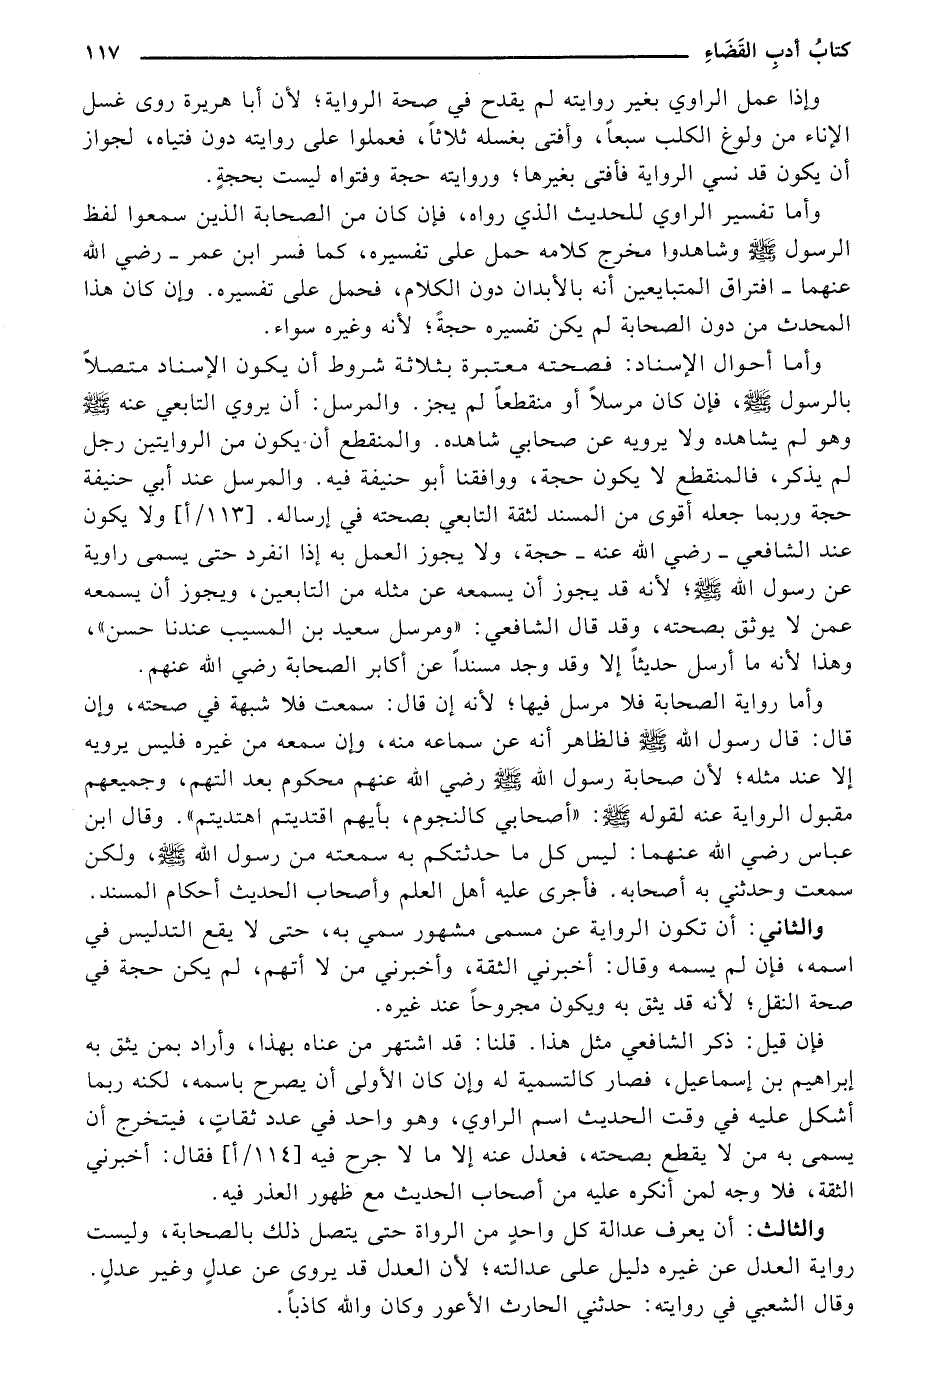 كتابُ أدبِ القَضَاءِ ١١٧
وإذا عمل الراوي بغير روايته لم يقدح في صحة الرواية؛ لأن أبا هريرة روى غسل
الإناء من ولوغ الكلب سبعاً، وأفتى بغسله ثلاثاً، فعملوا على روايته دون فتياه، لجواز
أن يكون قد نسي الرواية فأفتى بغيرها؛ وروايته حجة وفتواه ليست بحجةٍ.
وأما تفسير الراوي للحديث الذي رواه، فإن كان من الصحابة الذين سمعوا لفظ
الرسول ﷺ وشاهدوا مخرج كلامه حمل على تفسيره، كما فسر ابن عمر ـ رضي الله
عنهما ـ افتراق المتبايعين أنه بالأبدان دون الكلام، فحمل على تفسيره. وإن كان هذا
المحدث من دون الصحابة لم يكن تفسيره حجةً؛ لأنه وغيره سواء.
وأما أحوال الإسناد: فصحته معتبرة بثلاثة شروط أن يكون الإسناد متصلاً
بالرسول ﷺ، فإن كان مرسلاً أو منقطعاً لم يجز. والمرسل: أن يروي التابعي عنه ﷺ
وهو لم يشاهده ولا يرويه عن صحابي شاهده. والمنقطع أن يكون من الروايتين رجل
لم يذكر، فالمنقطع لا يكون حجة، ووافقنا أبو حنيفة فيه. والمرسل عند أبي حنيفة
حجة وربما جعله أقوى من المسند لثقة التابعي بصحته في إرساله. [١١٣/أ] ولا يكون
عند الشافعي ـ رضي الله عنه ـ حجة، ولا يجوز العمل به إذا انفرد حتى يسمى راوية
عن رسول الله ﷺ؛ لأنه قد يجوز أن يسمعه عن مثله من التابعين، ويجوز أن يسمعه
عمن لا يوثق بصحته، وقد قال الشافعي: «ومرسل سعيد بن المسيب عندنا حسن»،
وهذا لأنه ما أرسل حديثاً إلا وقد وجد مسنداً عن أكابر الصحابة رضي الله عنهم.
وأما رواية الصحابة فلا مرسل فيها؛ لأنه إن قال: سمعت فلا شبهة في صحته، وإن
قال: قال رسول الله ﷺ فالظاهر أنه عن سماعه منه، وإن سمعه من غيره فليس يرويه
إلا عند مثله؛ لأن صحابة رسول الله ﷺ رضي الله عنهم محكوم بعد التهم، وجميعهم
مقبول الرواية عنه لقوله ﷺ: «أصحابي كالنجوم، بأيهم اقتديتم اهتديتم». وقال ابن
عباس رضي الله عنهما: ليس كل ما حدثتكم به سمعته من رسول الله ﷺ، ولكن
سمعت وحدثني به أصحابه. فأجرى عليه أهل العلم وأصحاب الحديث أحكام المسند.
والثاني: أن تكون الرواية عن مسمى مشهور سمي به، حتى لا يقع التدليس في
اسمه، فإن لم يسمه وقال: أخبرني الثقة، وأخبرني من لا أتهم، لم يكن حجة في
صحة النقل؛ لأنه قد يثق به ويكون مجروحاً عند غيره.
فإن قيل: ذكر الشافعي مثل هذا. قلنا: قد اشتهر من عناه بهذا، وأراد بمن يثق به
إبراهيم بن إسماعيل، فصار كالتسمية له وإن كان الأولى أن يصرح باسمه، لكنه ربما
أشكل عليه في وقت الحديث اسم الراوي، وهو واحد في عدد ثقاتٍ، فيتخرج أن
يسمى به من لا يقطع بصحته، فعدل عنه إلا ما لا جرح فيه [١١٤/أ] فقال: أخبرني
الثقة، فلا وجه لمن أنكره عليه من أصحاب الحديث مع ظهور العذر فيه.
والثالث: أن يعرف عدالة كل واحدٍ من الرواة حتى يتصل ذلك بالصحابة، وليست
رواية العدل عن غيره دليل على عدالته؛ لأن العدل قد يروى عن عدلٍ وغير عدلٍ.
وقال الشعبي في روايته: حدثني الحارث الأعور وكان والله كاذباً.